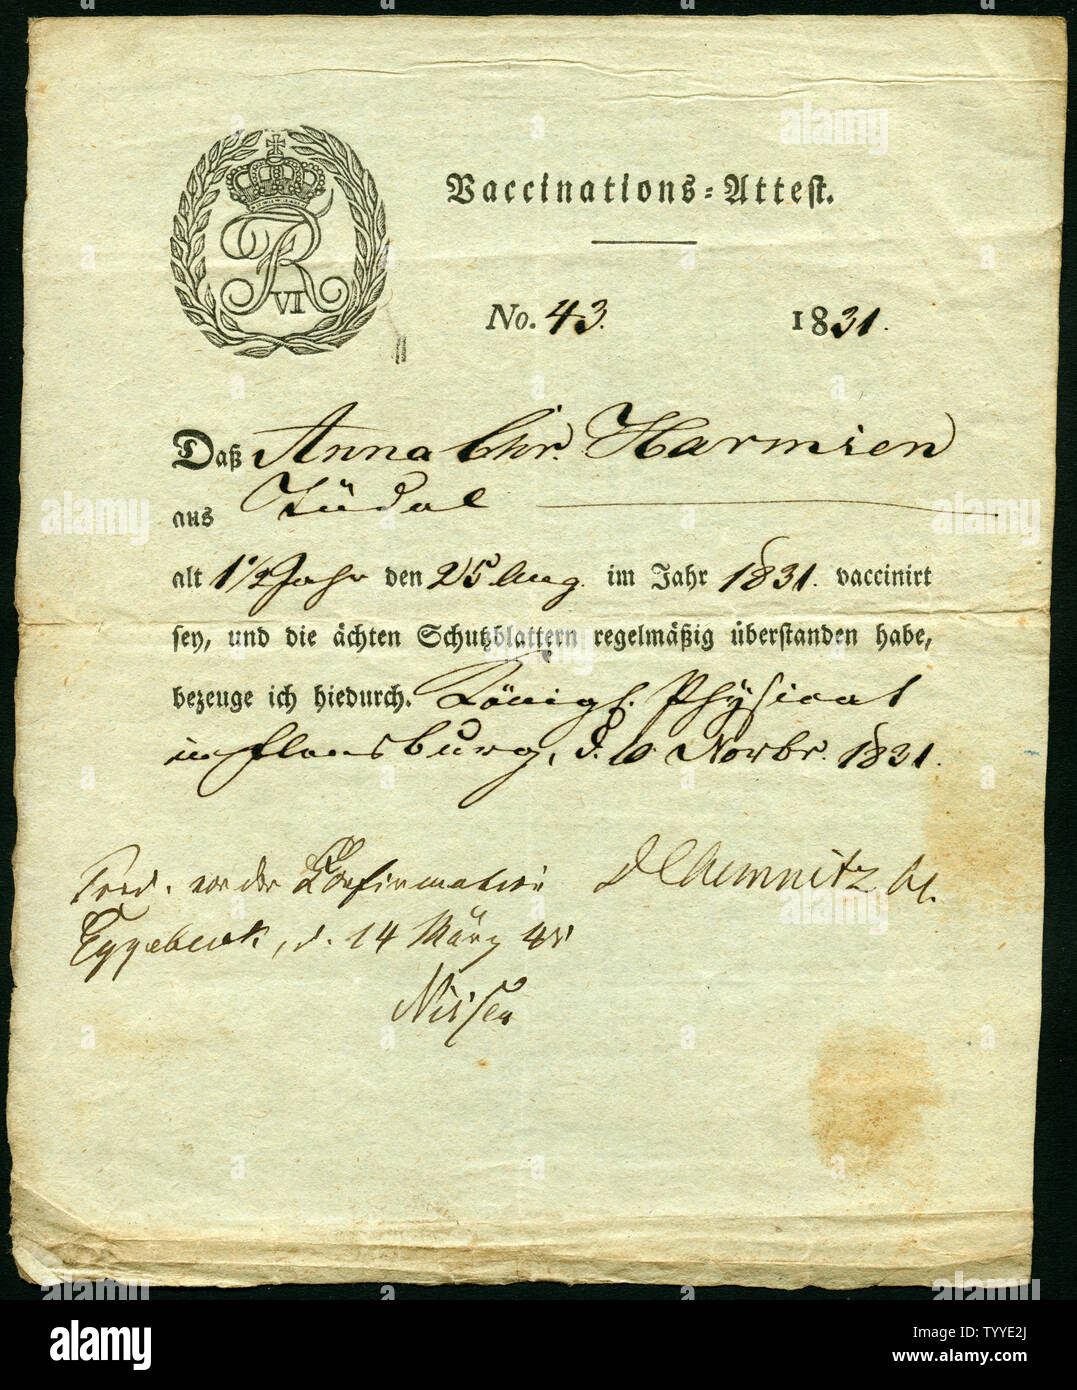 FR VI
Vaccinations-Attest.
No. 43. 1831.
Daß Anna Chr. Harmsen
aus Jüdal
alt 1½ Jahr den 25 Aug. im Jahr 1831. vaccinirt
sey, und die ächten Schutzblattern regelmäßig überstanden habe,
bezeuge ich hiedurch. Königl. Physicat
in Flensburg, d. 10 Novbr. 1831.
vor der Confirmation
Eggebeck, d. 14 März 45
Nissen
alamy
Image ID: TYYE2J
www.alamy.com